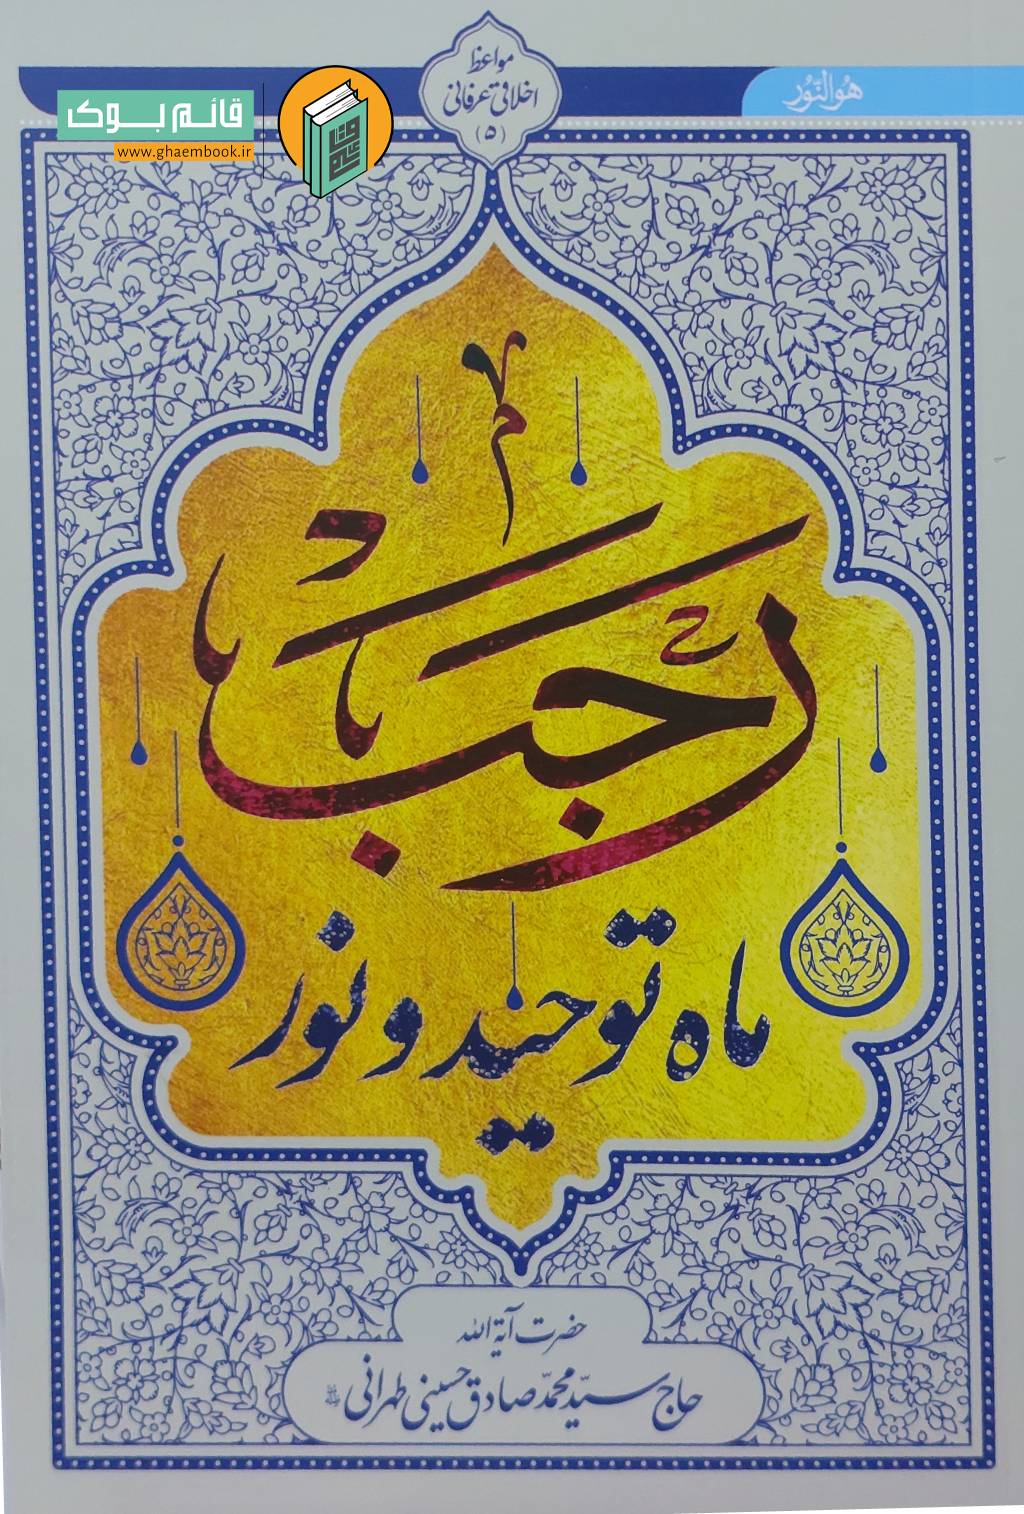 مواعظ
اخلاقی عرفانی
(۵)
هُوَ النُّور
قائم بوک
www.ghaembook.ir
رجب
ماه توحید و نور
حضرت آیة الله
حاج سیّد محمّد صادق حسینی طهرانی